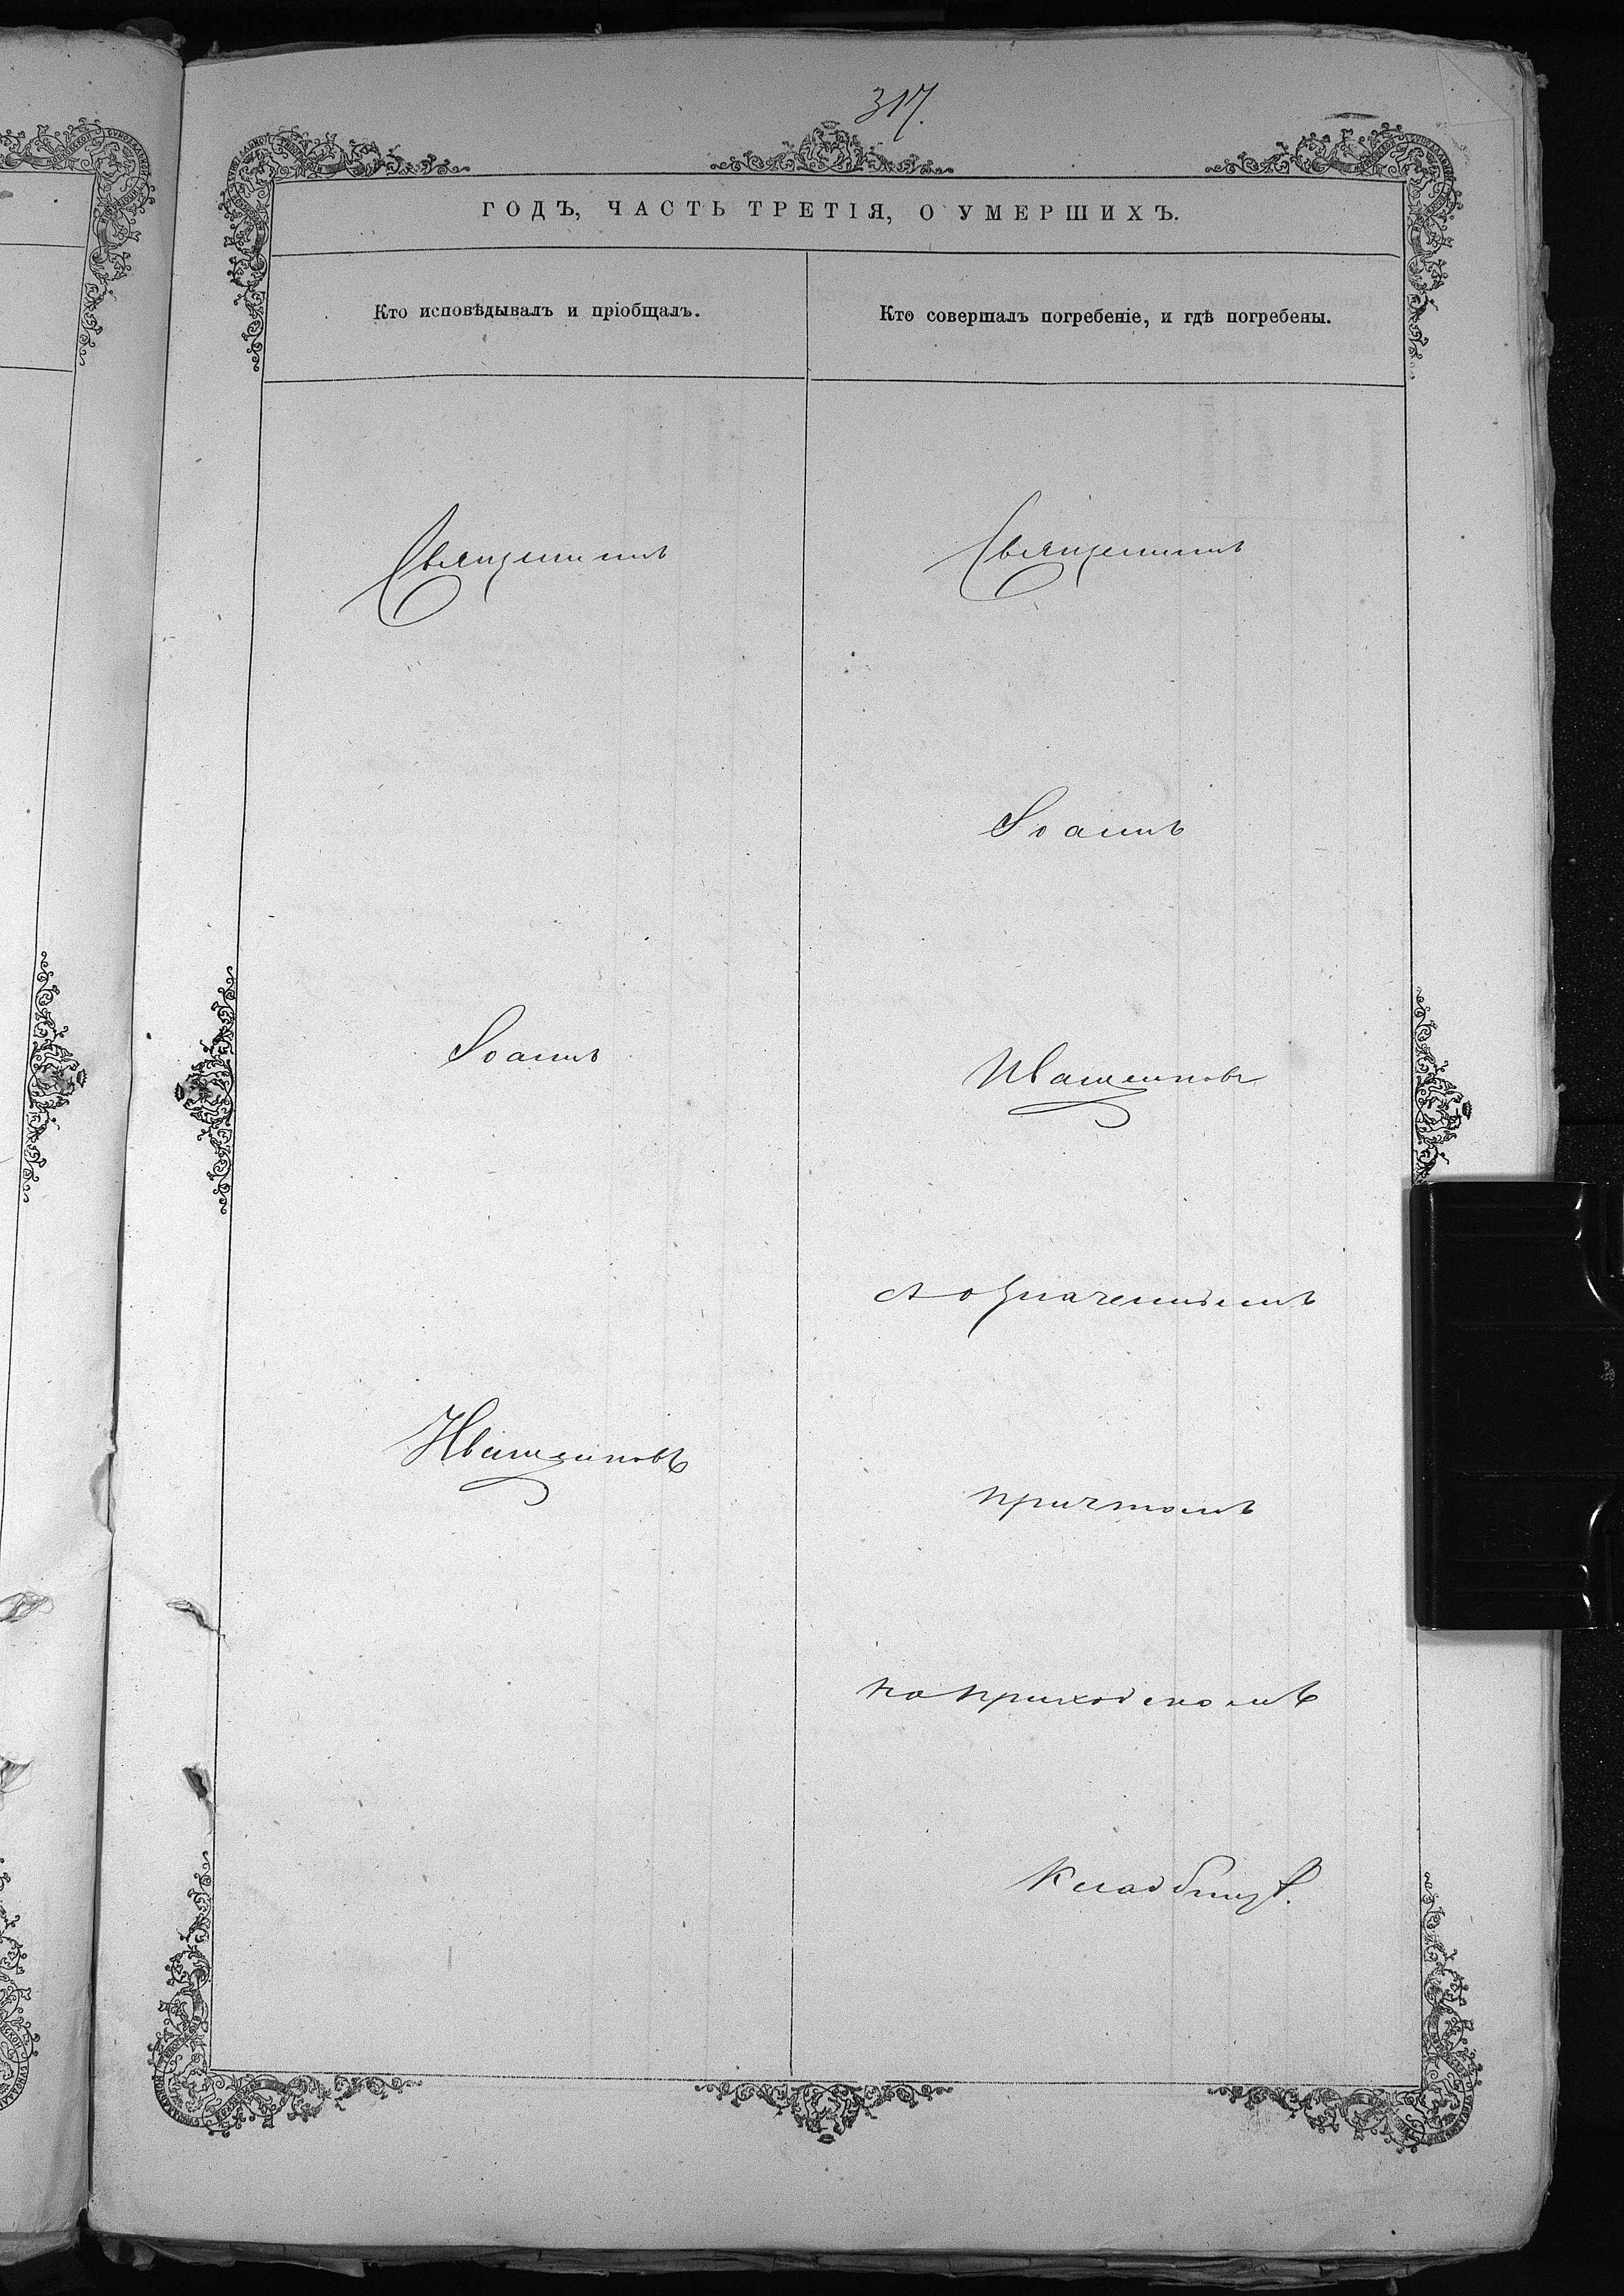 317.
ГОДЪ, ЧАСТЬ ТРЕТІЯ, О УМЕРШИХЪ.
Кто исповѣдывалъ и пріобщалъ.
Священникъ
Іоаннъ
Ивашенковъ
Кто совершалъ погребеніе, и гдѣ погребены.
Священникъ
Іоаннъ
Ивашенковъ
съ означеннымъ
причтомъ
на приходскомъ
Кладбищѣ.